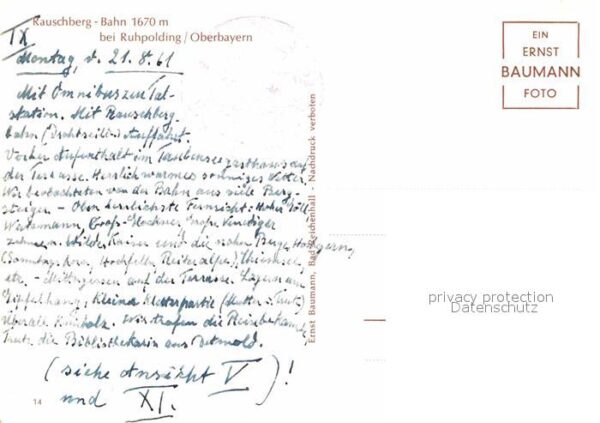 Rauschberg - Bahn 1670 m
bei Ruhpolding / Oberbayern
IX
Montag, d. 21.8.61
Mit Omnibus zur Tal-
station. Mit Rauschberg-
bahn (Drahtseilb.) Auffahrt.
Vorher Aufenthalt im Taubenseegasthaus auf
der Terrasse. Herrlich warmes sonniges Wetter.
Wir beobachteten von der Bahn aus viele Berg-
steiger - Oben herrlichste Fernsicht: Hoher Göll
Watzmann, Groß-Glockner Groß-Venediger
Wilder Kaiser und die nahen Berge Hochgern,
(Sonntagshorn, Hochfelln, Reiteralpe), Chiemsee,
etc. - Mittagessen auf der Terrasse. Lagern am
Gipfelhang, kleine Kletterpartie
Überall Wir trafen die Reisebekannte,
die Bibliothekarin aus Detmold.
(siehe Ansicht V
und XI.)!
14
Ernst Baumann, Bad Reichenhall - Nachdruck verboten
EIN
ERNST
BAUMANN
FOTO
privacy protection
Datenschutz